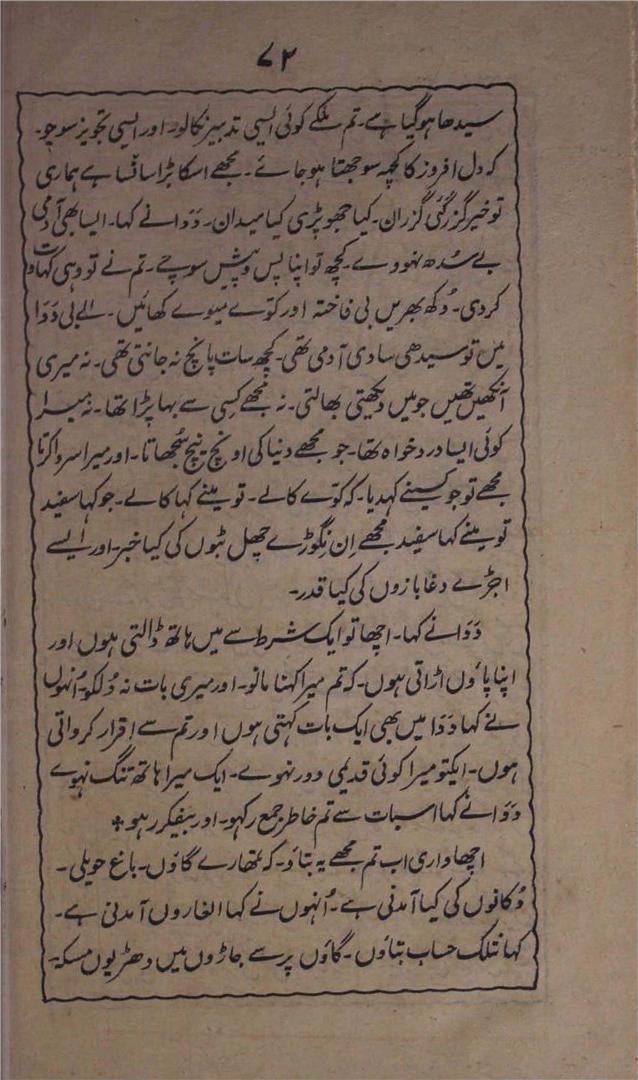 ۷۲
سیدھا ہو گیا ہے۔ تم ملکے کوئی ایسی تدبیر نکالو۔ اور ایسی تجویز سوچو۔
کہ دل افروز کا کچھ سوجھتا ہو جائے۔ مجھے اسکا بڑا سانسا ہے ہماری
تو خیر گزر گئی گزران۔ کیا جھوپڑی کیا میدان۔ ددا نے کہا۔ ایسا بھی آدمی
بے سُدھ نہووے۔ کچھ تو اپنا پس و پیش سوچے۔ تم نے تو وہی کہاوت
کر دی۔ دُکھ بھریں بی فاختہ اور کوّے میوے کھائیں۔ اے بی ددا
میں تو سیدھی سادی آدمی تھی۔ کچھ سات پانچ نہ جانتی تھی۔ نہ میری
آنکھیں تھیں جو میں دیکھتی بھالتی۔ نہ مجھے کِسی سے بہا پڑا تھا۔ نہ میرا
کوئی ایسا درد خواہ تھا۔ جو مجھے دنیا کی اونچ نیچ سُجھاتا۔ اور میرا سروا کرتا
مجھے تو جو کسینے کہدیا۔ کہ کوّے کالے۔ تو مینے کہا کالے۔ جو کہا سفید
تو مینے کہا سفید مجھے اِن نِگوڑے چھل بٹوں کی کیا خبر۔ اور ایسے
اجڑے دغا بازوں کی کیا قدر۔
ددا نے کہا۔ اچھا تو ایک شرط سے میں ہاتھ ڈالتی ہوں اور
اپنا پاؤں اڑاتی ہوں۔ کہ تم میرا کہنا مانو۔ اور میری بات نہ دُلکھو۔ اُنہوں
نے کہا ددا میں بھی ایک بات کہتی ہوں اور تم سے اِقرار کرواتی
ہوں۔ ایکتو میرا کوئی قدیمی دور نہوے۔ ایک میرا ہاتھ تنگ نہوے
ددا نے کہا اسبات سے تم خاطر جمع رکہو۔ اور بیفکر رہو ٭
اچھا واری اب تم مجھے یہ بتاؤ۔ کہ تمھارے گاؤں۔ باغ حویلی۔
دُکانوں کی کیا آمدنی ہے۔ اُنہوں نے کہا الغاروں آمدنی ہے۔
کہانتلک حساب بتاؤں۔ گاؤں پر سے جاڑوں میں دھڑیوں مسکہ۔